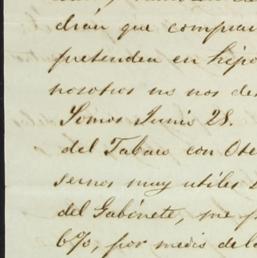 dran que comprar
pretenden en hipo
nosotros no nos de
Somos Junio 28.
del Tabaco con Ote
sernos muy utiles
del Gabinete, me
6%, por medio de la